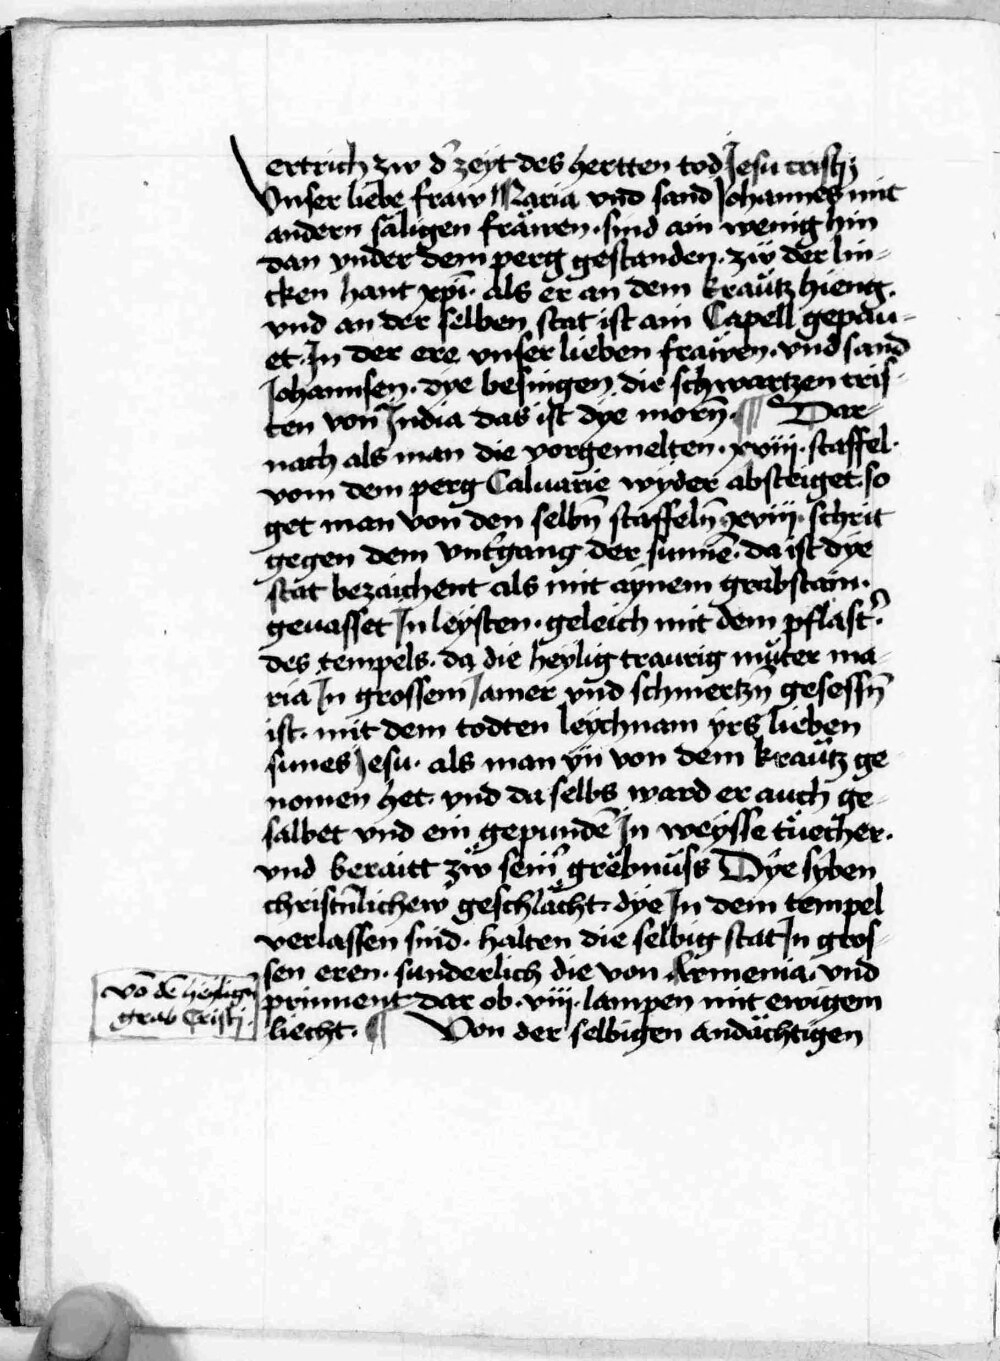 ertrich zw d' zeyt des hertten tod Jesu cristj
Vnser liebe fraw Maria vnd sand Johannes mit
andern säligen fräwen · sind ain wenig hin
dan vnder dem perg gestanden · zw der lin-
cken hant xpi · als er an dem kräutz hieng ·
vnd an der selben stat ist ain Capell gepau-
et · Jn der ere vnser lieben frawen · vnd sand
Johannsen · dye besingen die schwartzen cris-
ten von Jndia das ist dye morn̄ · ¶ Dar-
nach als man die vorgemelten · xviij · staffel ·
vom dem perg Caluarie wyder absteiget · so
get man von den selbn̄ staffeln̄ xviij · schrit
gegen dem vnt'gang der sunnē · da ist dye
stat bezaichent als mit aynem grabstain ·
geuasset Jn leysten · geleich mit dem pflast'
des tempels · da die heylig traurig muter ma-
ria Jn grossem Jamer vnd schmertzn̄ gesessn̄
ist · mit dem todten leychnam yrs lieben
sunes Jesu · als man yn von dem kräutz ge
nomen het · vnd da selbs ward er auch ge-
salbet vnd ein gepundē Jn weysse tüecher ·
vnd beraitt zw sein' grebnüss Dye syben
christn̄lichew geschlächt · dye Jn dem tempel
verlassen sind · halten die selbig stat Jn gros-
sen eren · sunderlich die von Armenia · vnd
prinnent dar ob · viij · lampen mit ewigem
liecht · ¶ Von der selbigen andächtigen
vō dē heylign̄
grab Cristj